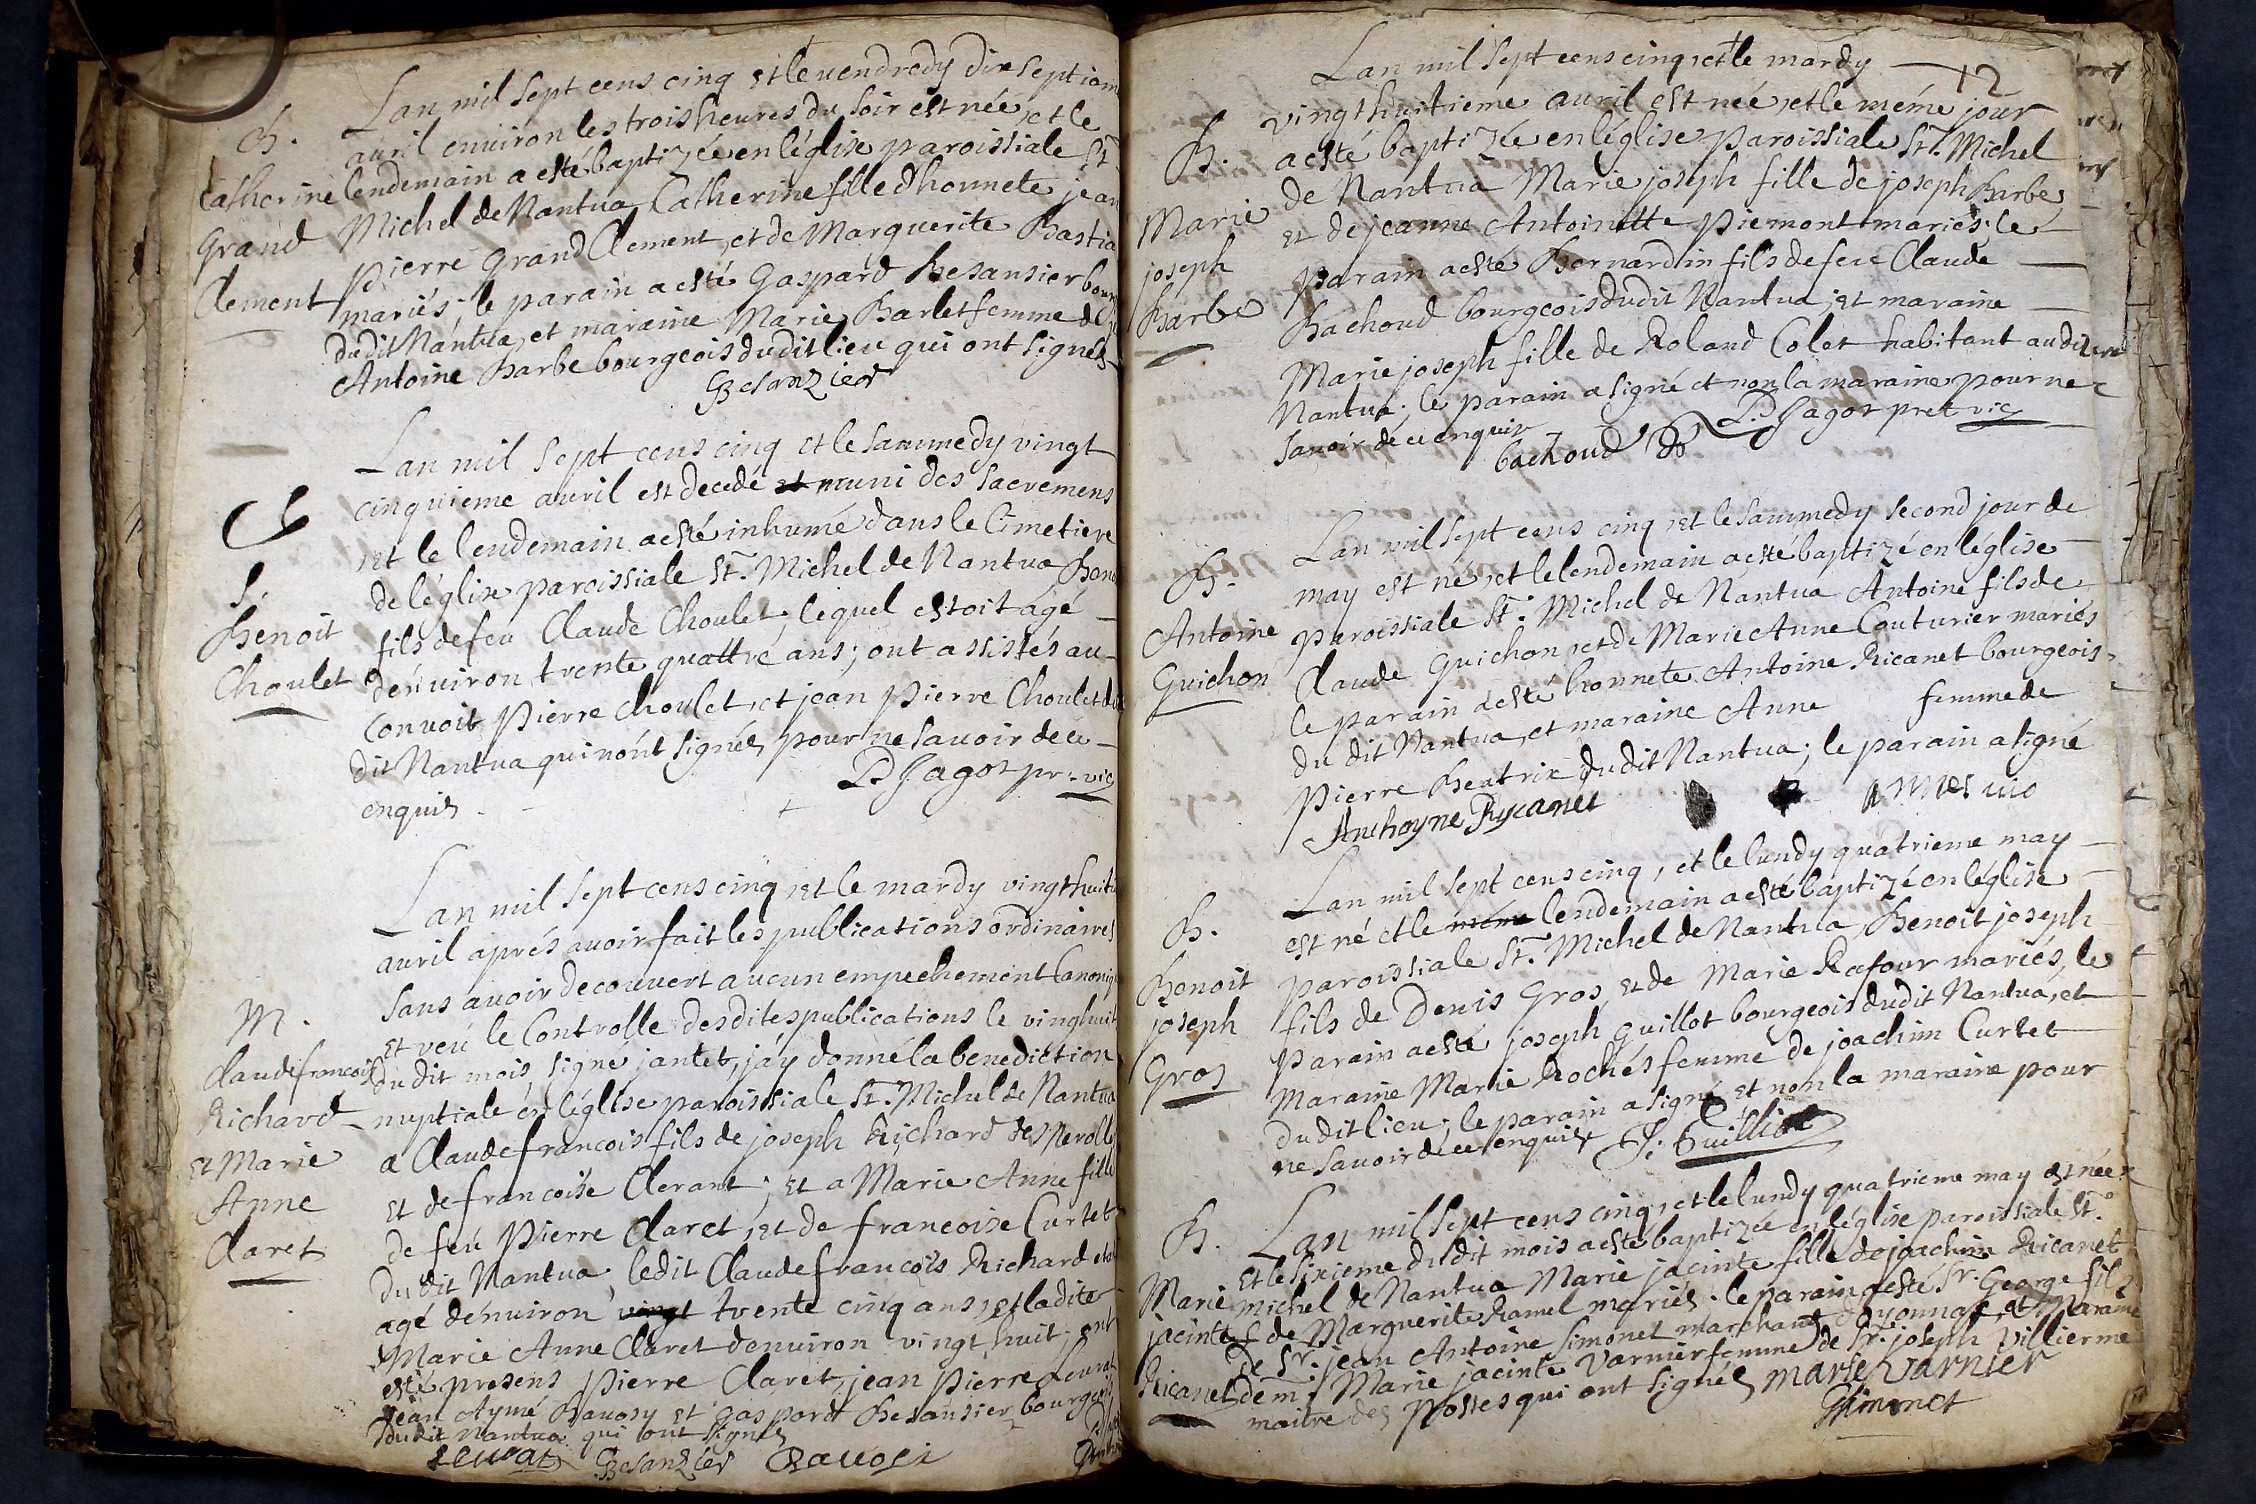 Lan mil sept cens cinq et le vendredy dix septiem
avril environ les trois heures du soir est née, et le
lendemain a esté baptizée en l'église paroissiale St
Michel de Nantua Catherine fille d'honnete jean
pierre Grand Clement, et de Marguerite Bastia
mariés; le parain a esté Gaspard Besansier bour
dudit Nantua, et maraine Marie Barlet femme d
Antoine Barbe bourgeois dudit lieu qui ont signés
GBesanzier
B.
Catherine
Grand
Clement
Lan mil sept cens cinq et le sammedy vingt
cinquieme avril est decedé et muni des sacremens
et le lendemain a esté inhumé dans le Cimetiere
de l'église paroissiale St. Michel de Nantua Beno
fils de feu Claude Choulet, lequel estoit agé
d'environ trente quattre ans; ont assistés au
Convoit Pierre Choulet, et jean Pierre Choulet du
dit Nantua qui n'ont signés pour ne savoir de ce
enquis. P Jagot pr. vic
S.
Benoit
Choulet
Lan mil sept cens cinq et le mardy vingthuiti
avril aprés avoir fait les publications ordinaires
sans avoir decouvert aucun empechement Canoniq
et veü le Controlle desdites publications le vinghuit
dudit mois signé jantet, j'ay donné la benediction
nuptiale en l'église paroissiale St. Michel de Nantua
a Claudefrancois fils de joseph Richard des Nerolle
et de francoise Clerant; et a Marie Anne fille
de feu Pierre Claret, et de francoise Curtet
dudit Nantua, ledit Claudefrancois Richard et
agé d'environ vingt trente cinq ans, et ladite
Marie Anne Claret d'environ vingt huit; ont
esté presens Pierre Claret, jean Pierre Leurat
jean Aymé Ravosy et Gaspard Besansier bourgeois
dudit Nantua qui ont signés
Leurat GBesanzier Ravosi
M.
Claudefrancois
Richard
et Marie
Anne
Claret
12
Lan mil sept cens cinq, et le mardy
vingthuitieme avril est née, et le méme jour
a esté baptizée en l'église paroissiale St. Michel
de Nantua Marie joseph fille de joseph Barbe
et de jeanne Antoinette Piemont mariés; le
parain a esté Bernardin fils de feu Claude
Bachoud bourgeois dudit Nantua; et maraine
Marie joseph fille de Roland Colet habitant audit
Nantua; le parain a signé et non la maraine pour ne
savoir de ce enquis
bachoud P. Jagot pret vic
B.
Marie
joseph
Barbe
Lan mil sept cens cinq, et le sammedy second jour de
may est né, et le lendemain a esté baptizé en l'église
paroissiale St. Michel de Nantua Antoine fils de
Claude Guichon, et de Marie Anne Couturier mariés
le parain a esté honnete Antoine Ricanet bourgeois
du dit Nantua, et maraine Anne femme de
Pierre Beatrix dudit Nantua; le parain a signé
Anthoyne Rycanet
B.
Antoine
Guichon
Lan mil sept cens cinq, et le lundy quatrieme may
est né et le méme lendemain a esté baptizé en l'église
paroissiale St. Michel de Nantua, Benoit joseph
fils de Denis Gros, et de Marie Rafour mariés, le
parain a esté joseph Guillot bourgeois dudit Nantua, et
maraine Marie Rochés femme de joachim Curtet
dudit lieu; le parain a signé et non la maraine pour
ne savoir de ce enquise J. Guilliot
B.
Benoit
joseph
Gros
Lan mil sept cens cinq, et le lundy quatrieme may est née
et le sixieme du dit mois a esté baptizée en l'église paroissiale St.
Michel de Nantua Marie jacinte fille de joachim Ricanet
et de Marguerite Ramel mariés. le parain a esté Sr. George fils
de Sr. jean Antoine Simonet marchand d'Oyonnax, et maraine
dem: Marie jacinte Varnier femme de Sr. joseph Villierme
maitre des postes qui ont signés marie Varnier
GSimonet
B.
Marie
jacinte
Ricanet